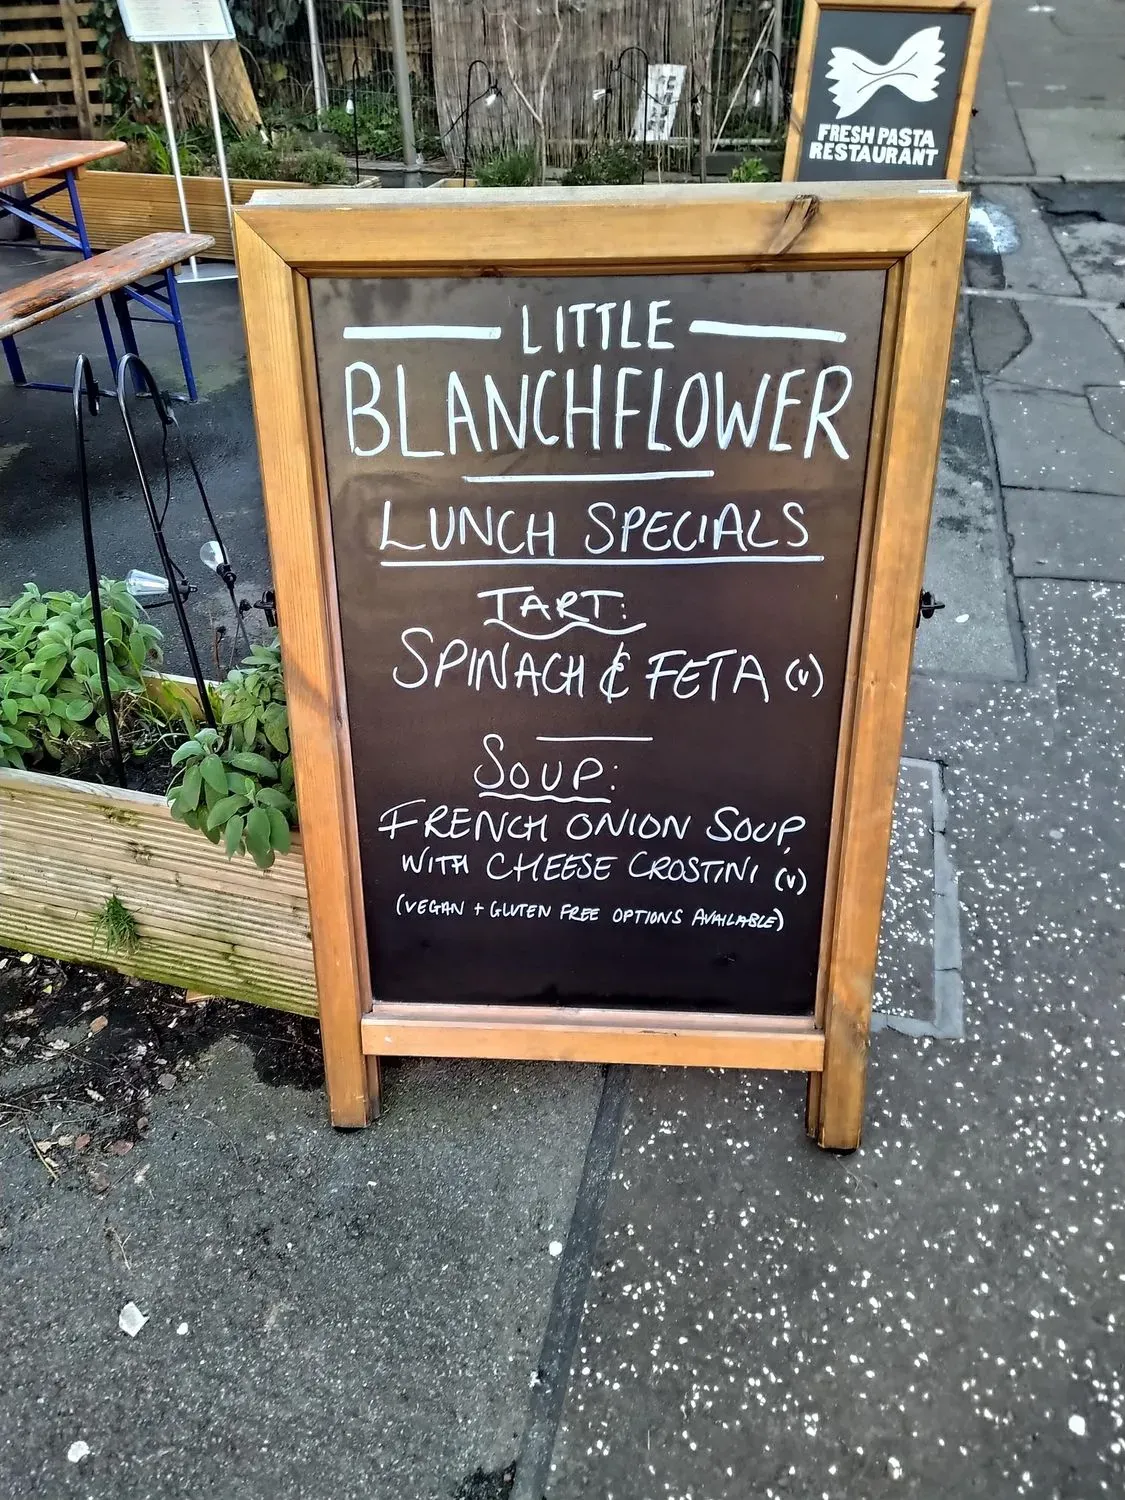 FRESH PASTA
RESTAURANT
LITTLE
BLANCHFLOWER
LUNCH SPECIALS
TART:
SPINACH & FETA (V)
SOUP:
FRENCH ONION SOUP,
WITH CHEESE CROSTINI (V)
(VEGAN + GLUTEN FREE OPTIONS AVAILABLE)